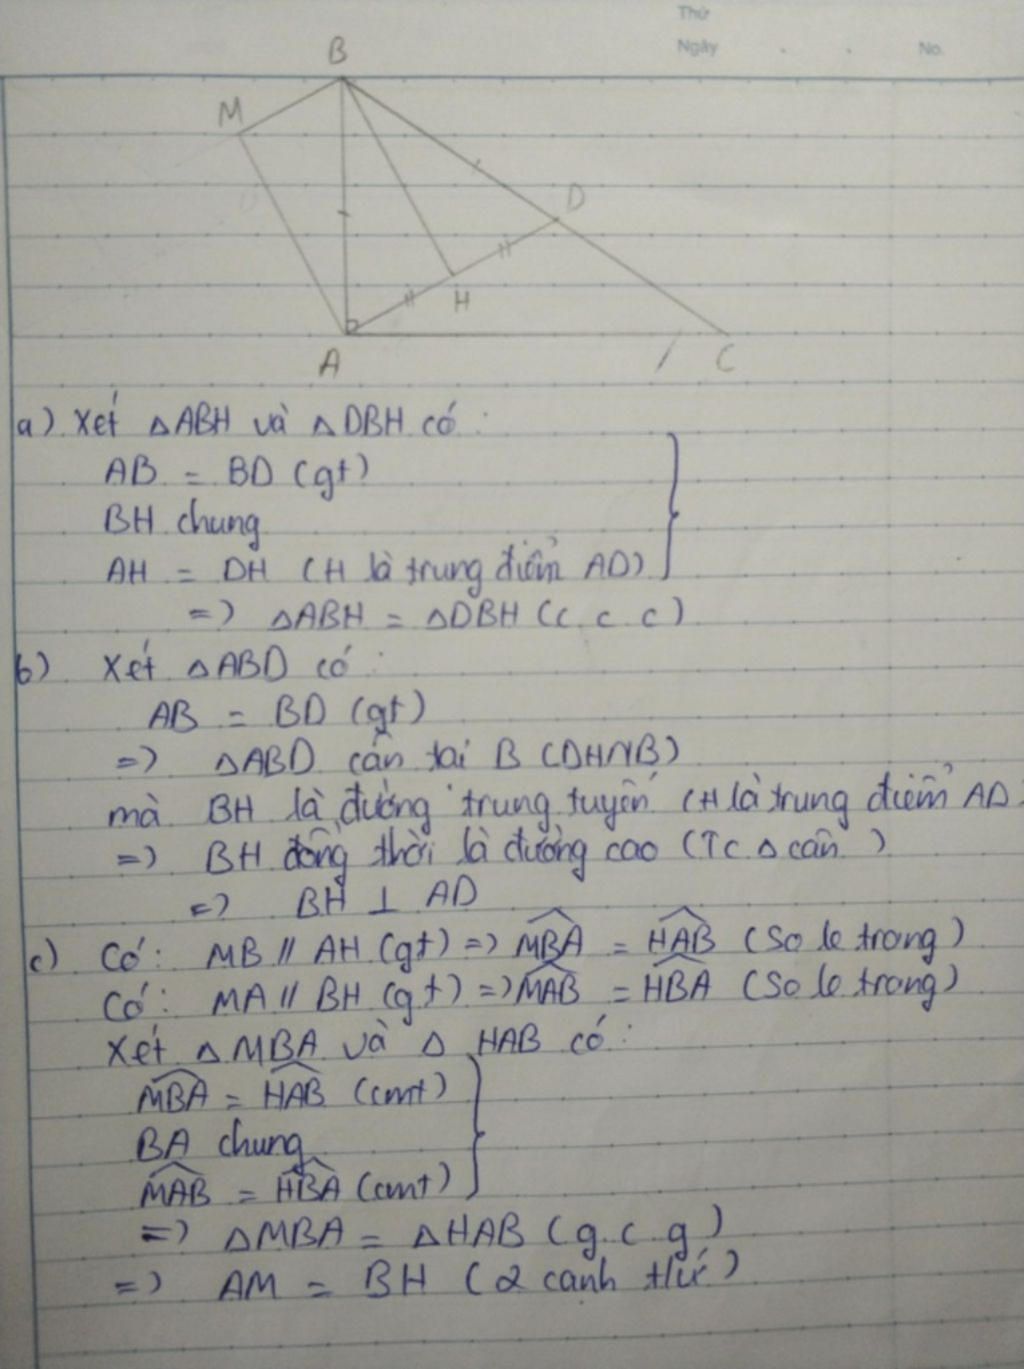 Thứ
Ngày . . No.
B
M
D
H
A
C
a) Xét △ABH và △DBH có:
AB = BD (gt)
BH chung
AH = DH (H là trung điểm AD)
=> △ABH = △DBH (c c c)
b) Xét △ABD có:
AB = BD (gt)
=> △ABD cân tại B (DHNB)
mà BH là đường trung tuyến (H là trung điểm AD)
=> BH đồng thời là đường cao (Tc △ cân)
=> BH ⊥ AD
c) Có: MB // AH (gt) => \widehat{MBA} = \widehat{HAB} (So le trong)
Có: MA // BH (gt) => \widehat{MAB} = \widehat{HBA} (So le trong)
Xét △MBA và △ HAB có:
\widehat{MBA} = \widehat{HAB} (cmt)
BA chung
\widehat{MAB} = \widehat{HBA} (cmt)
=> △MBA = △HAB (g.c.g)
=> AM = BH (2 cạnh t/ứ)